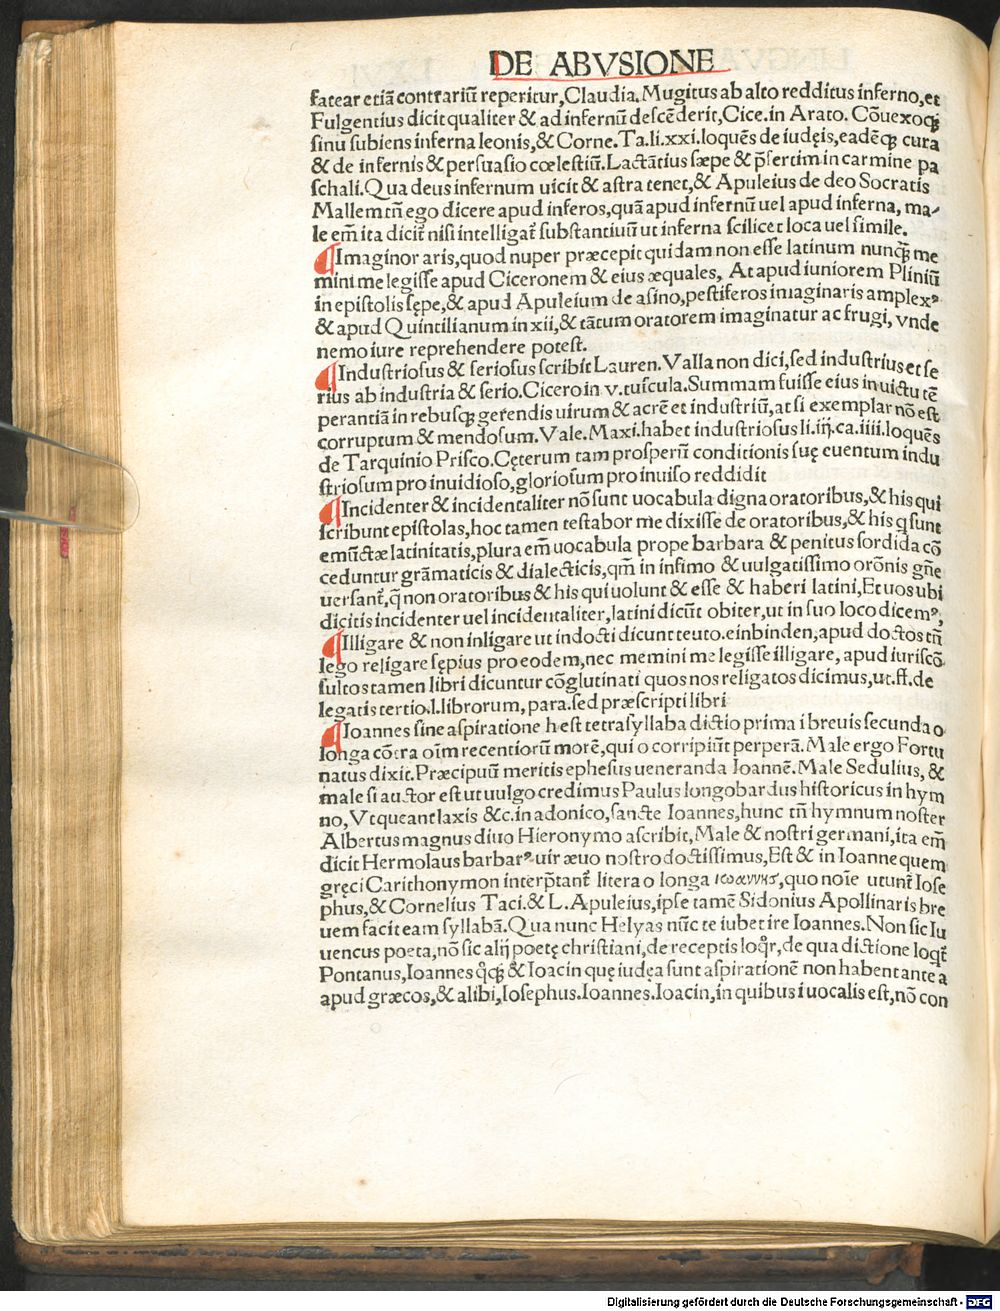 DE ABVSIONE
fatear etiã contrariũ reperitur, Claudia. Mugitus ab alto redditus inferno, et
Fulgentius dicit qualiter & ad infernũ descẽderit, Cice. in Arato. Cõuexoqʒ
sinu subiens inferna leonis, & Corne. Ta. li. xxi. loquẽs de iudęis, eadẽqʒ cura
& de infernis & persuasio cœlestiũ. Lactãtius sæpe & p̃sertim in carmine pa
schali. Qua deus infernum uicit & astra tenet, & Apuleius de deo Socratis
Mallem tñ ego dicere apud inferos, quã apud infernũ uel apud inferna, ma-
le em̃ ita dicit᷑ nisi intelligat᷑ substantiuũ ut inferna scilicet loca uel simile.
¶Imaginor aris, quod nuper præcepit quidam non esse latinum nunqʒ me
mini me legisse apud Ciceronem & eius æquales, At apud iuniorem Pliniũ
in epistolis sępe, & apud Apuleium de asino, pestiferos imaginaris amplexꝰ
& apud Quintilianum in xii, & tãtum oratorem imaginatur ac frugi, vnde
nemo iure reprehendere potest.
¶Industriosus & seriosus scribit Lauren. Valla non dici, sed industrius et se
rius ab industria & serio. Cicero in v. tuscula. Summam fuisse eius in uictu tẽ
perantiã in rebusqʒ gerendis uirum & acrẽ et industriũ, at si exemplar nõ est
corruptum & mendosum. Vale. Maxi. habet industriosus li. iij. ca. iiii. loquẽs
de Tarquinio Prisco. Cęterum tam prosperũ conditionis suę euentum indu
striosum pro inuidioso, gloriosum pro inuiso reddidit
¶Incidenter & incidentaliter nõ sunt uocabula digna oratoribus, & his qui
scribunt epistolas, hoc tamen testabor me dixisse de oratoribus, & his q sunt
emũctæ latinitatis, plura em̃ uocabula prope barbara & penitus sordida cõ
ceduntur grãmaticis & dialecticis, qm̃ in infimo & uulgatissimo orõnis gñe
uersant᷑, q̃ non oratoribus & his qui uolunt & esse & haberi latini, Et uos ubi
dicitis incidenter uel incidentaliter, latini dicũt obiter, ut in suo loco dicemꝰ,
¶Illigare & non inligare ut indocti dicunt teuto. einbinden, apud doctos tñ
lego religare sępius pro eodem, nec memini me legisse illigare, apud iuriscõ
sultos tamen libri dicuntur cõglutinati quos nos religatos dicimus, ut. ff. de
legatis tertio. l. librorum, para. sed præscripti libri
¶Ioannes sine aspiratione h est tetrasyllaba dictio prima i breuis secunda o
longa cõtra oĩm recentiorũ morẽ, qui o corripiũt perperã. Male ergo Fortu
natus dixit. Præcipuũ meritis ephesus ueneranda Ioannẽ. Male Sedulius, &
male si auctor est ut uulgo credimus Paulus longobardus historicus in hym
no, Vt queant laxis &c. in adonico, sancte Ioannes, hunc tñ hymnum noster
Albertus magnus diuo Hieronymo ascribit, Male & nostri germani, ita em̃
dicit Hermolaus barbarꝰ uir æuo nostro doctissimus, Est & in Ioanne quem
gręci Carithonymon interp̃tant᷑ litera o longa ιωαννης, quo noĩe utunt᷑ Iose
phus, & Cornelius Taci. & L. Apuleius, ipse tamẽ Sidonius Apollinaris bre
uem facit eam syllabã. Qua nunc Helyas nũc te iubet ire Ioannes. Non sic Iu
uencus poeta, nõ sic alij poetę christiani, de receptis loq̃r, de qua dictione loqt᷑
Pontanus, Ioannes q̊qʒ & Ioacin quę iudęa sunt aspirationẽ non habent ante a
apud græcos, & alibi, Iosephus. Ioannes. Ioacin, in quibus i uocalis est, nõ con
Digitalisierung gefördert durch die Deutsche Forschungsgemeinschaft - DFG